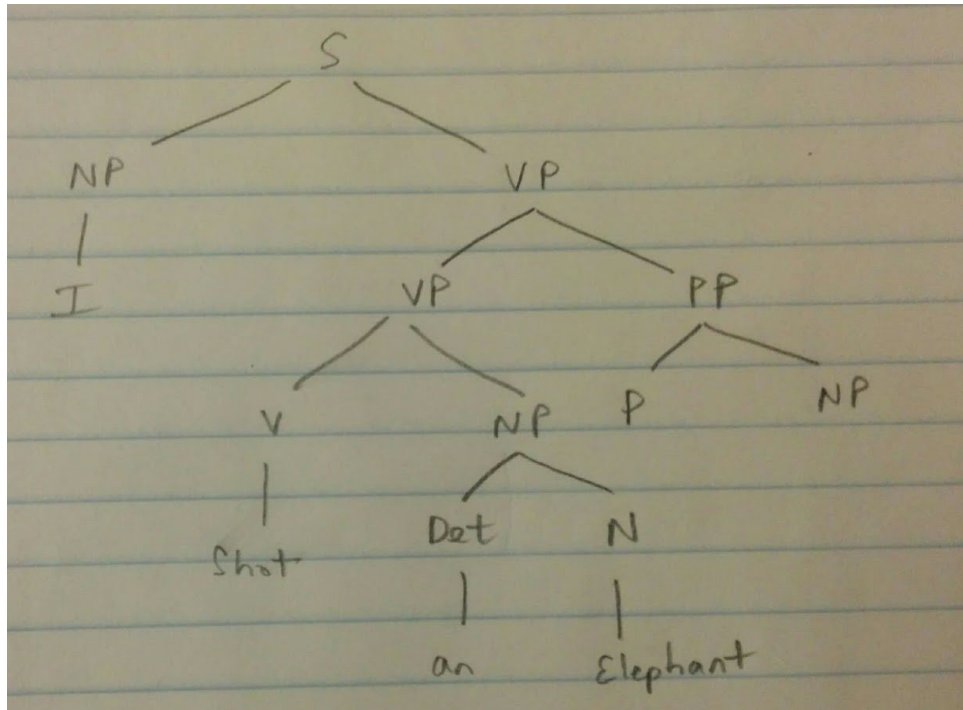 S
NP VP
I VP PP
V NP P NP
Shot Det N
an Elephant